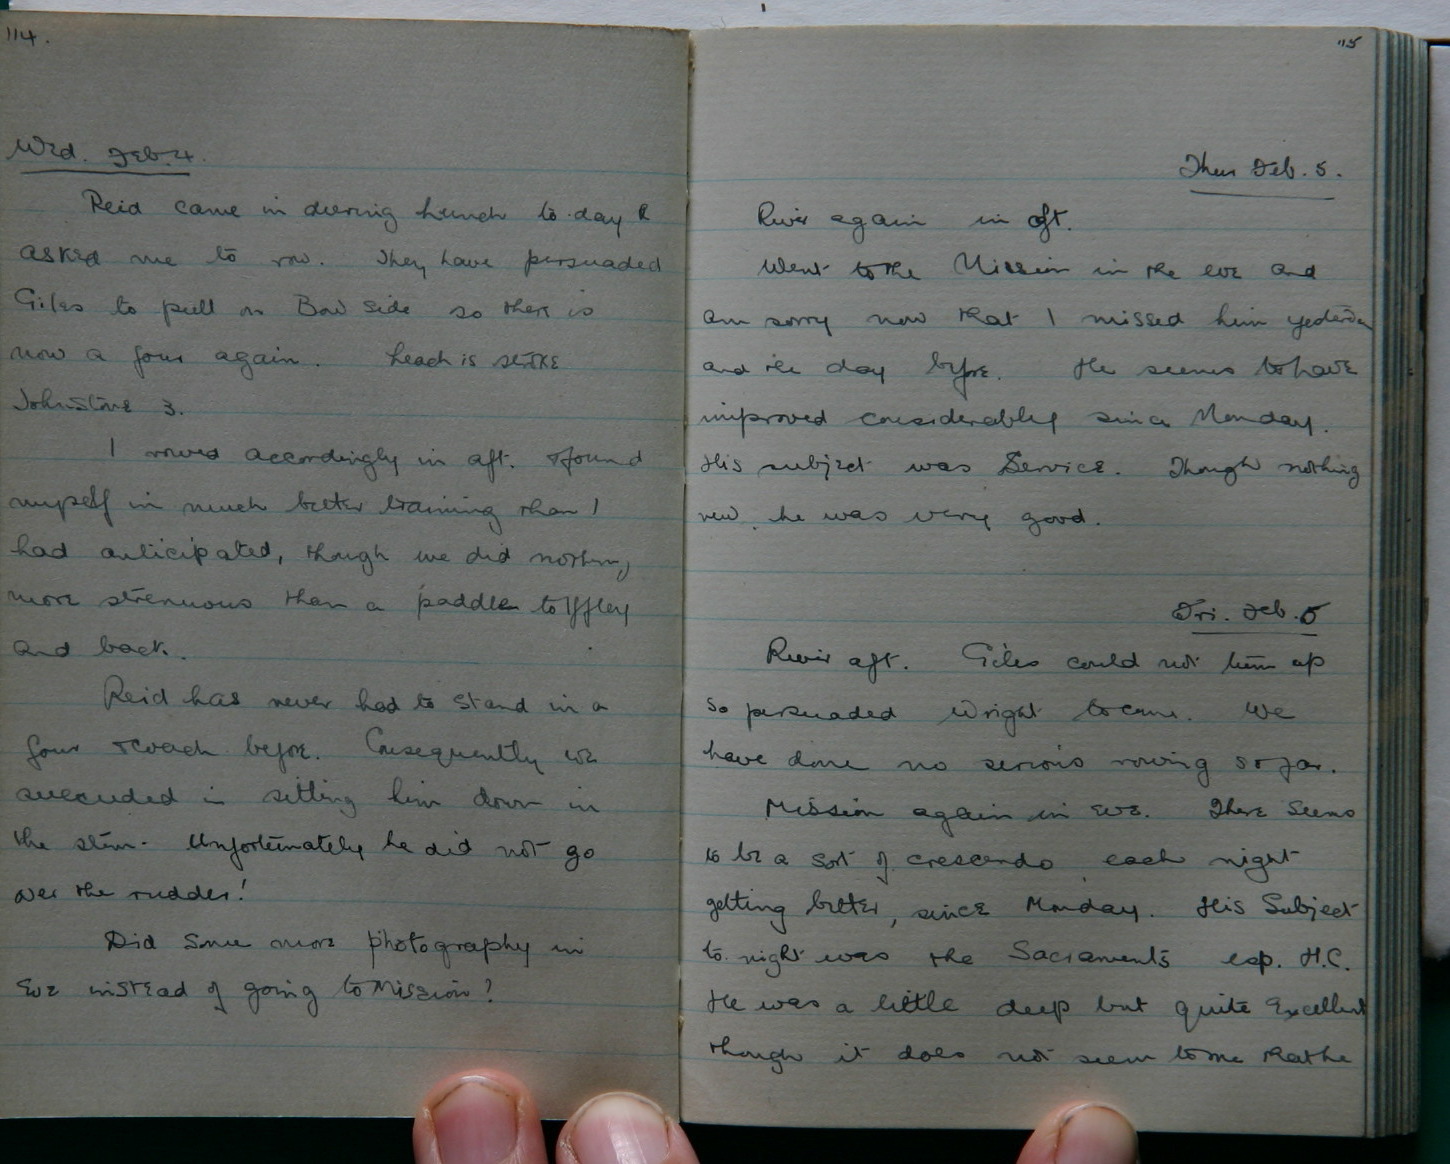 114.
Wed. Feb. 4.
Reid came in during lunch to-day &
asked me to row. They have persuaded
Giles to pull on Bow side so there is
now a four again. Leach is stroke
Johnstone 3.
I rowed accordingly in aft. & found
myself in much better training than I
had anticipated, though we did nothing
more strenuous than a paddle to Iffley
and back.
Reid has never had to stand in a
four & coach before. Consequently we
succeeded in sitting him down in
the stern. Unfortunately he did not go
over the rudder!
Did some more photography in
eve instead of going to Mission!
115
Thur Feb. 5.
River again in aft.
Went to the Mission in the eve and
am sorry now that I missed him yesterday
and the day before. He seems to have
improved considerably since Monday.
His subject was Service. Though nothing
new, he was very good.
Fri. Feb. 6
River aft. Giles could not turn up
so persuaded Wright to come. We
have done no serious rowing so far.
Mission again in eve. There seems
to be a sort of crescendo, each night
getting better, since Monday. His Subject
to-night was the Sacraments esp. H.C.
He was a little deep but quite excellent
though it does not seem to me that he